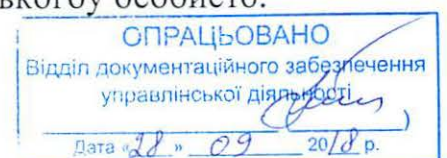 вкогоу особисто.
ОПРАЦЬОВАНО
Відділ документаційного забезпечення
управлінської діяльності
)
Дата «28» 09 2018 р.